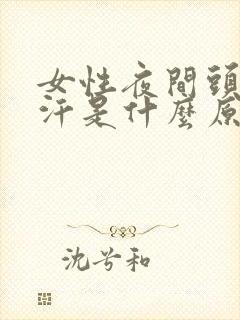 女性夜間頭
汗是什麼原
沈兮和